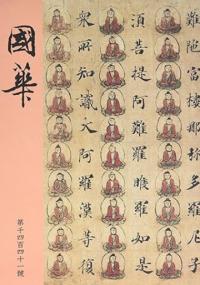 國華
第千四百四十一號
難陀富樓那弥多羅尼子
須菩提阿難羅睺羅如是
衆所知識大阿羅漢等復